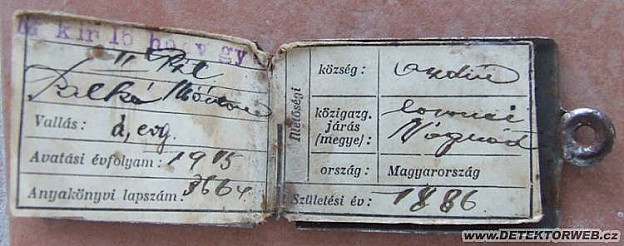 m. kir. 16 honv. gy.
ifj. Pál
Vallás: á. evg.
Avatási évfolyam: 1915
Anyakönyvi lapszám: 3664
Illetőségi
község:
közigazg.
járás
(megye): Nógrád
ország: Magyarország
Születési év: 1886.
www.DETEKTORWEB.cz